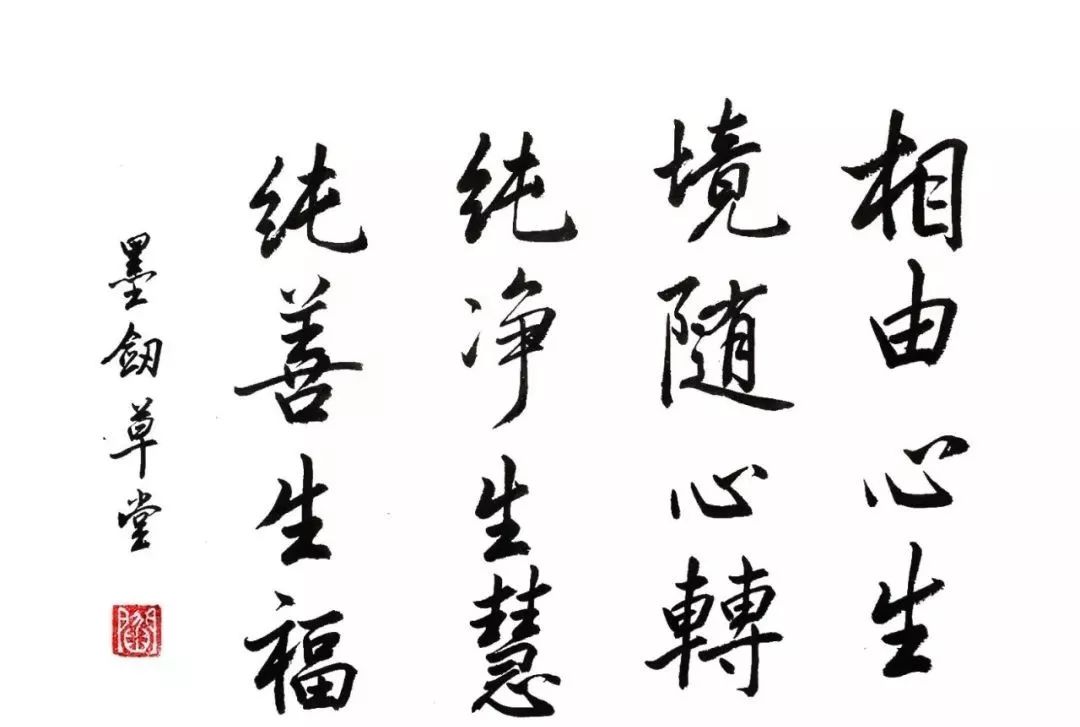 相由心生
境随心轉
纯净生慧
纯善生福
墨劔草堂